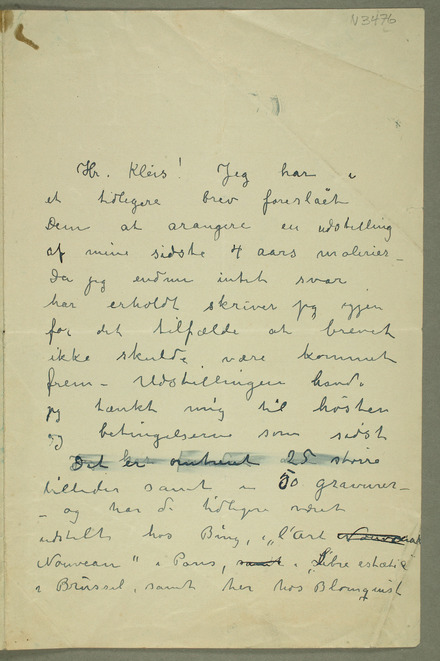 N 3476
Hr. Kleis! Jeg har i
et tidligere brev foreslået
Dem at arangere en udstilling
af mine sidste 4 aars malerier –
Da jeg endnu intet svar
har erholdt skriver jeg igjen
for det tilfælde at brevet
ikke skulde være kommet
frem – Udstillingen havde
jeg tænkt mig til hösten
og betingelserne som sidst
Det er omtrent 25 större
billeder samt 50 gravurer –
– og har de tidligere været
udstillt hos Bing, i „l'art Nouveau
Nouveau" i Paris, samt i „Libre estetiq
i Brüssel, samt her hos Blomquist